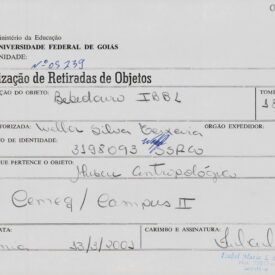 Ministério da Educação
UNIVERSIDADE FEDERAL DE GOIÁS
UNIDADE:
Nº 05239
ização de Retiradas de Objetos
ÇÃO DO OBJETO: Bebedouro IBBL
TOMB
TORIZADA: Silva Ferreira ORGÃO EXPEDIDOR:
DE IDENTIDADE: 3198093
QUE PERTENCE O OBJETO: Museu Antropológico
Cemeg / Campus II
DATA: CARIMBO E ASSINATURA:
13/3/2002